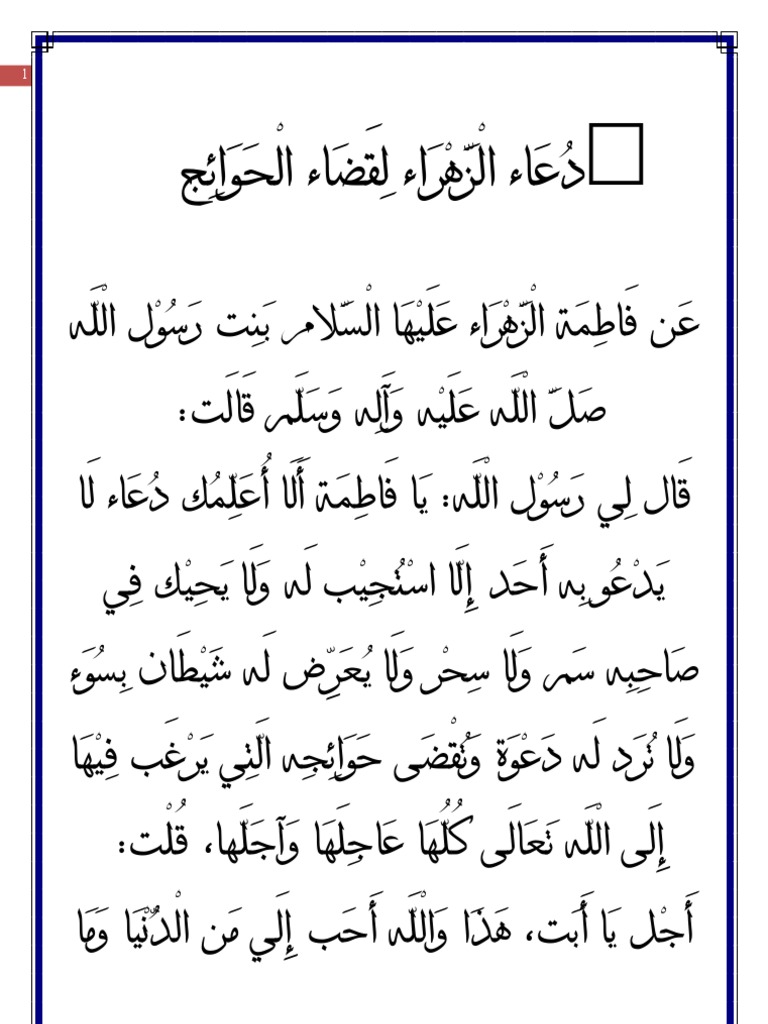 1
دُعَاء الْزَّهْرَاء لِقَضَاء الْحَوَائِج
عَن فَاطِمَة الْزَّهْرَاء عَلَيْهَا الْسَّلَام بَنِت رَسُوْل الْلَّه
صَلّ الْلَّه عَلَيْه وَآَلِه وَسَلَّم قَالَت:
قَال لِي رَسُوْل الْلَّه: يَا فَاطِمَة أَلَا أُعَلِّمُك دُعَاء لَا
يَدْعُوبِه أَحَد إِلَّا اسْتُجِيْب لَه وَلَا يَحِيْك فِي
صَاحِبِه سَم وَلَا سِحْر وَلَا يُعَرِّض لَه شَيْطَان بِسُوَء
وَلَا تُرَد لَه دَعْوَة وَتُقْضَى حَوَائِجِه الَّتِي يَرْغَب فِيْهَا
إِلَى الْلَّه تَعَالَى كُلُّهَا عَاجِلَهَا وَآجَلَها، قُلْت:
أَجْل يَا أَبَت، هَذَا وَالْلَّه أَحَب إِلَي مَن الْدُّنْيَا وَمَا